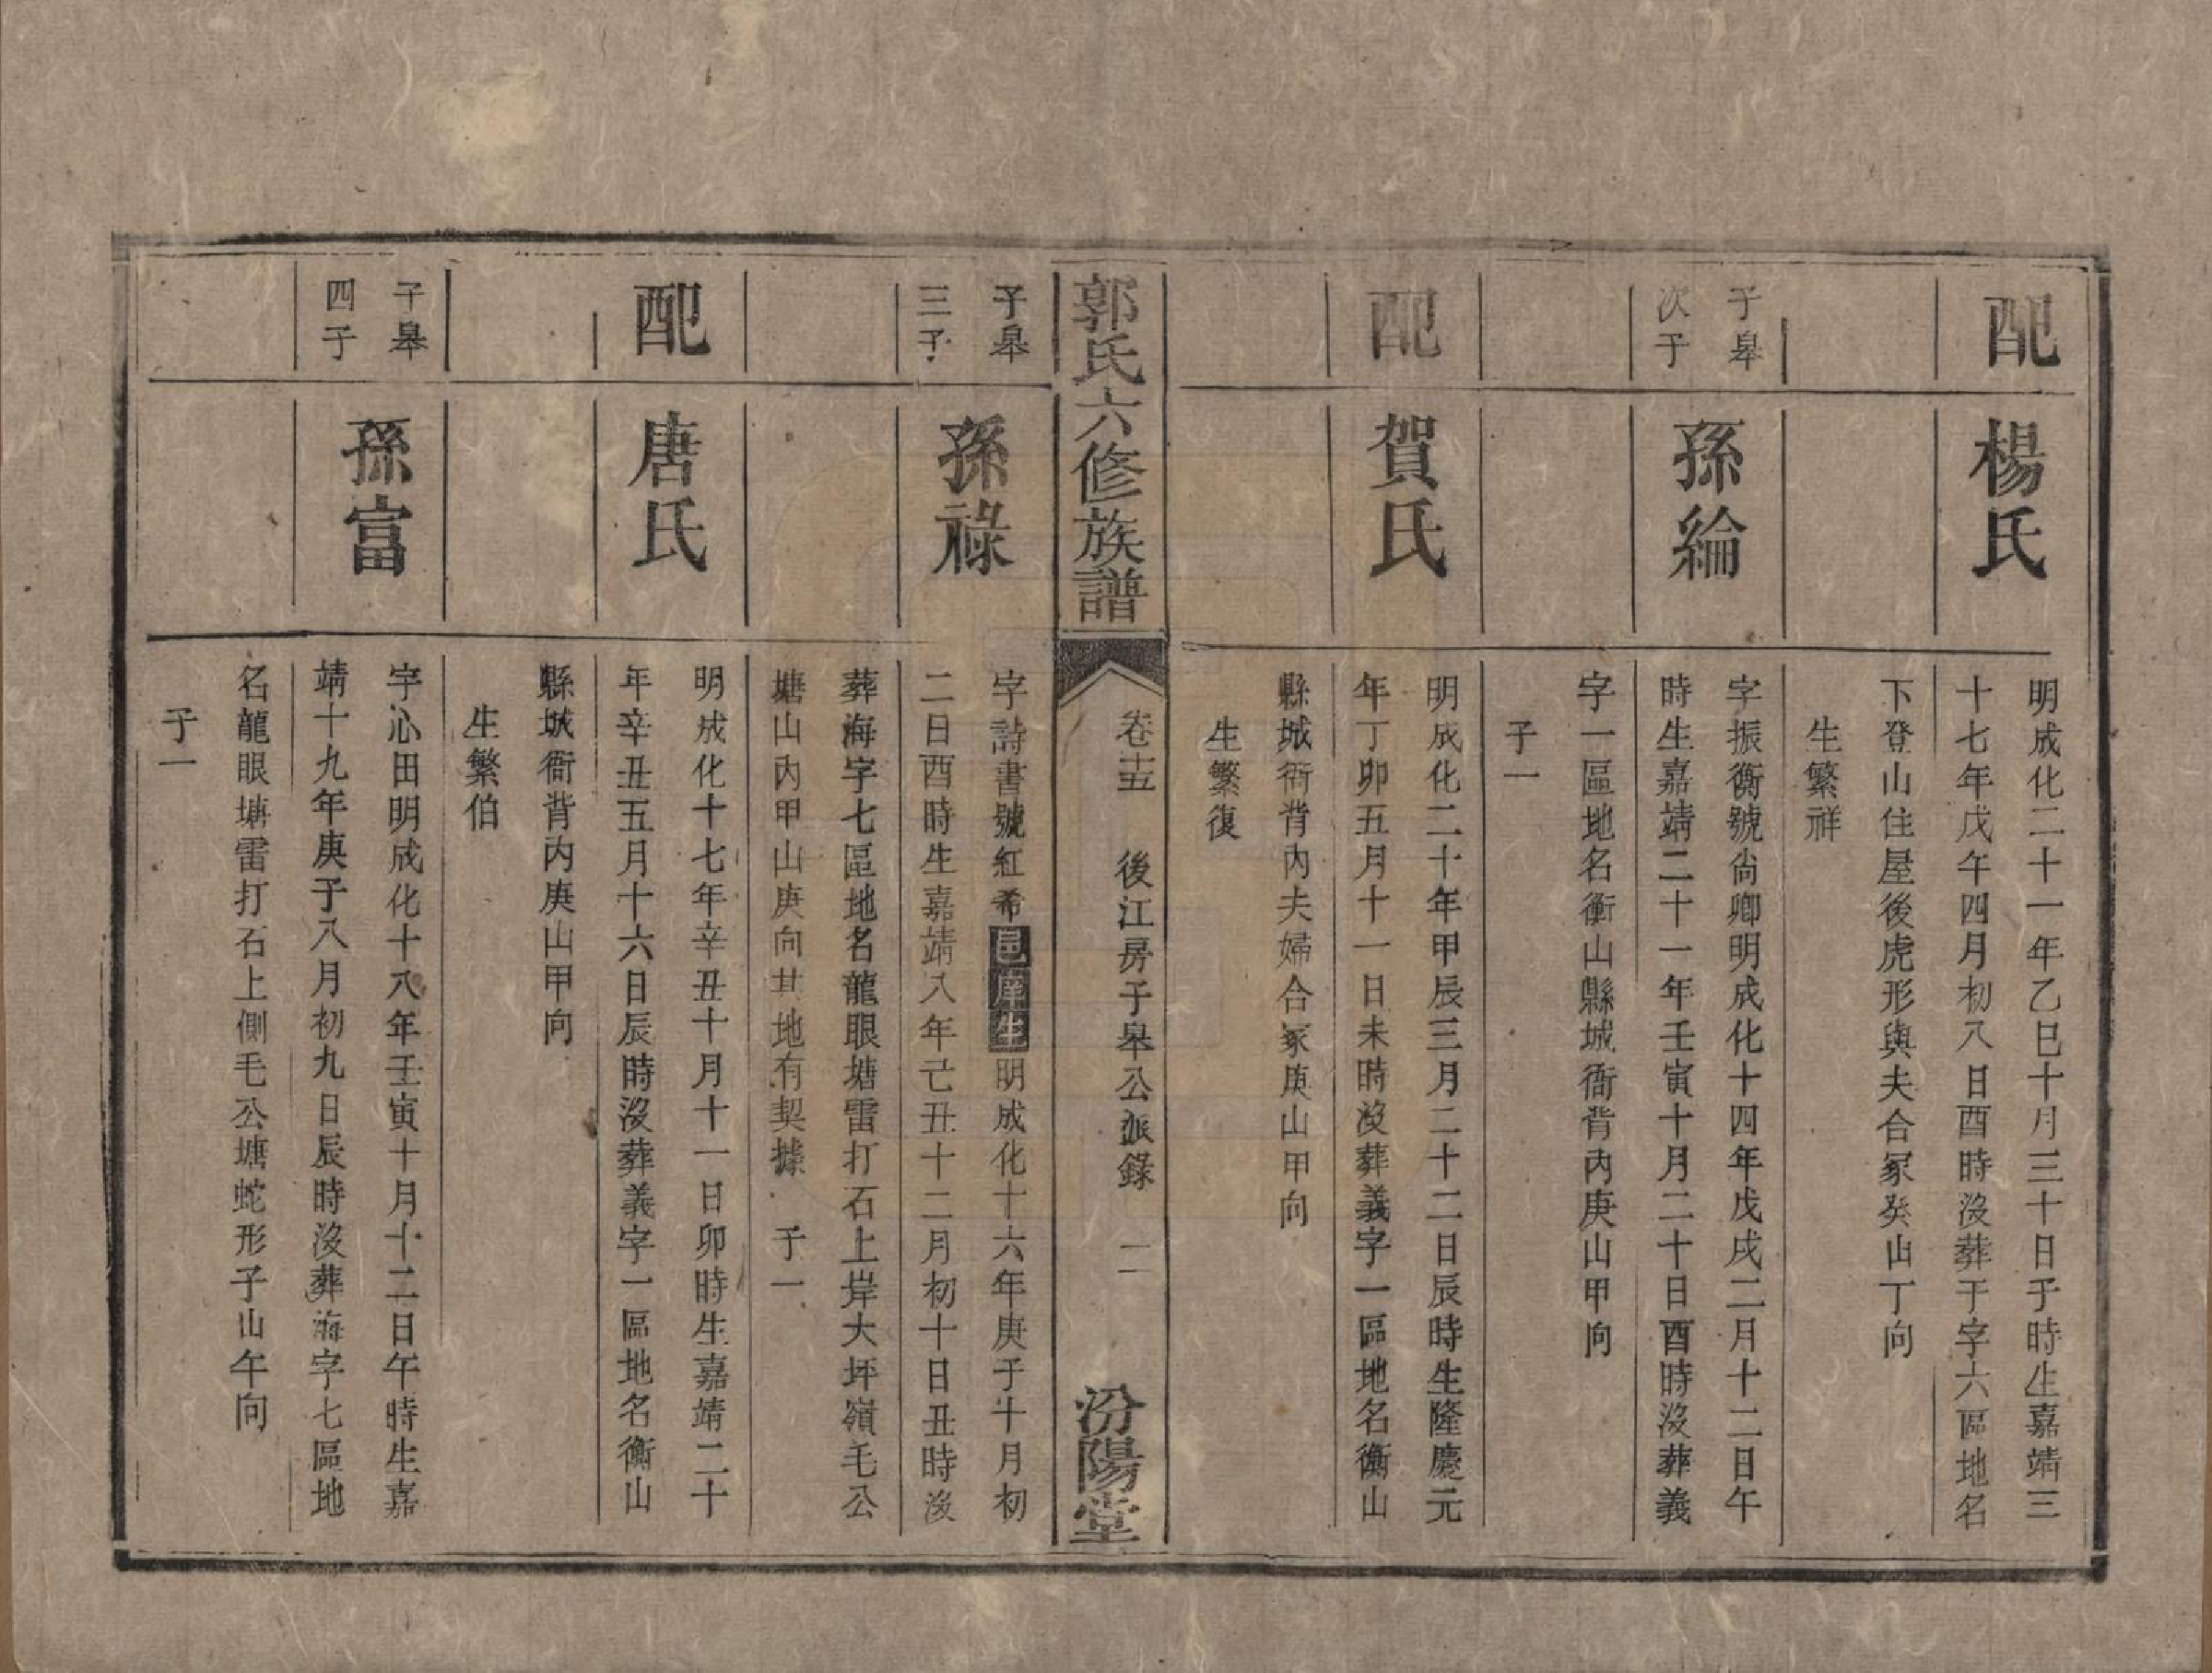 配
楊氏
明成化二十一年乙巳十月三十日子時生嘉靖三
十七年戊午四月初八日酉時沒葬于字六區地名
下登山住屋後虎形與夫合冢癸山丁向
生繁祥
子皋
次子
孫綸
字振衡號尙卿明成化十四年戊戌二月十二日午
時生嘉靖二十一年壬寅十月二十日酉時沒葬義
字一區地名衡山縣城衙背內庚山甲向
子一
配
賀氏
明成化二十年甲辰三月二十二日辰時生隆慶元
年丁卯五月十一日未時沒葬義字一區地名衡山
縣城衙背內夫婦合冢庚山甲向
生繁復
郭氏六修族譜
卷十五
後江房子皋公派錄
二
汾陽堂
子皋
三子
孫祿
字詩書號紅希邑庠生明成化十六年庚子十月初
二日酉時生嘉靖八年己丑十二月初十日丑時沒
葬海字七區地名龍眼塘雷打石上岸大坪嶺毛公
塘山內甲山庚向其地有契據 子一
配
唐氏
明成化十七年辛丑十月十一日卯時生嘉靖二十
年辛丑五月十六日辰時沒葬義字一區地名衡山
縣城衙背內庚山甲向
生繁伯
子皋
四子
孫富
字心田明成化十八年壬寅十月十二日午時生嘉
靖十九年庚子八月初九日辰時沒葬海字七區地
名龍眼塘雷打石上側毛公塘蛇形子山午向
子一